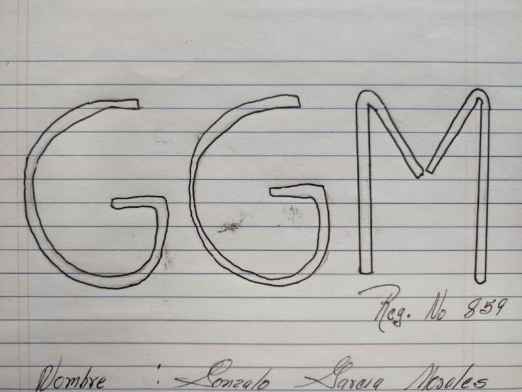 GGM
Reg. No 859
Nombre : Gonzalo Garcia Morales